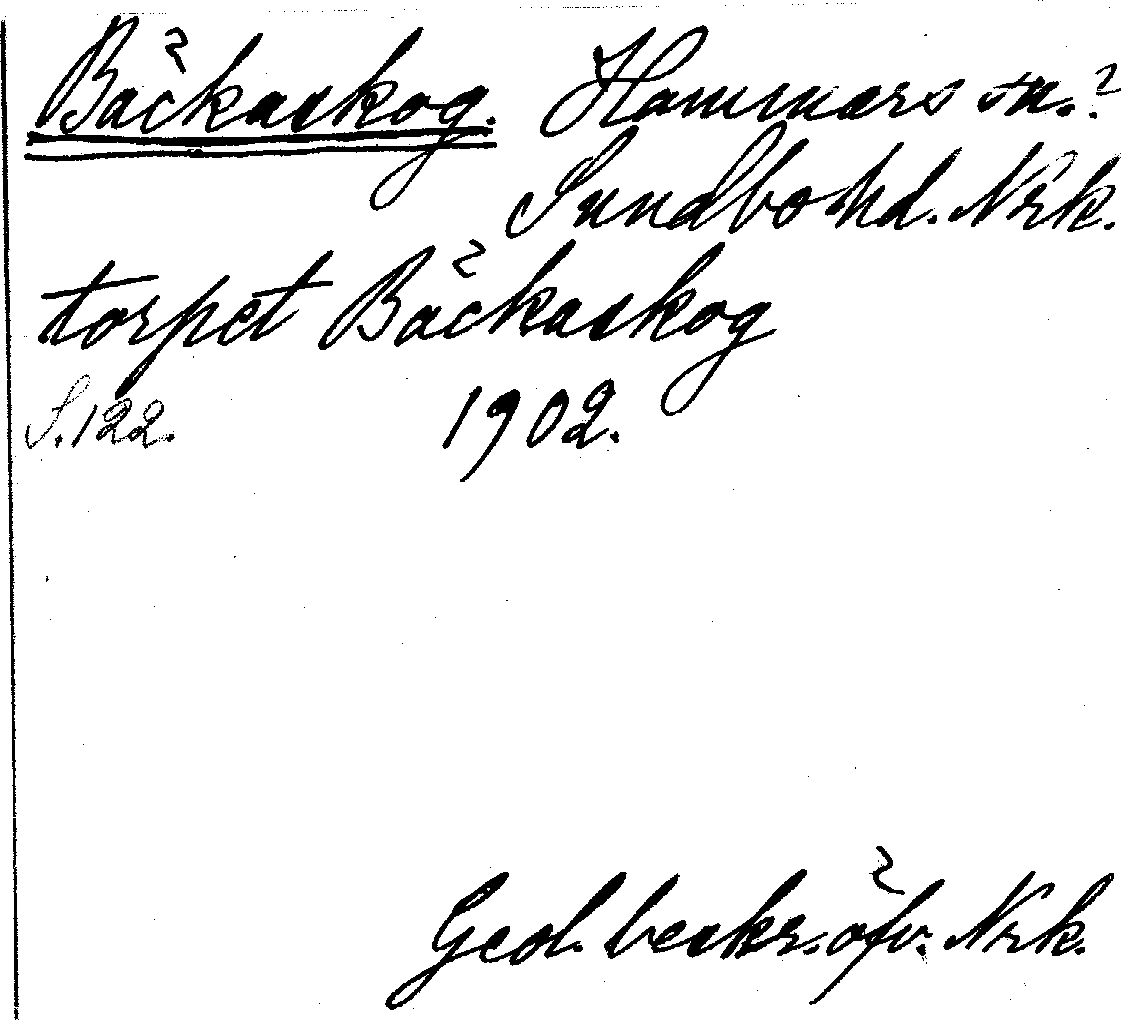 Bäckaskog. Hammars sn.?
Sundbo hd. Nrk.
torpet Bäckaskog
S. 122. 1902.
Geol. beskr. öfv. Nrk.